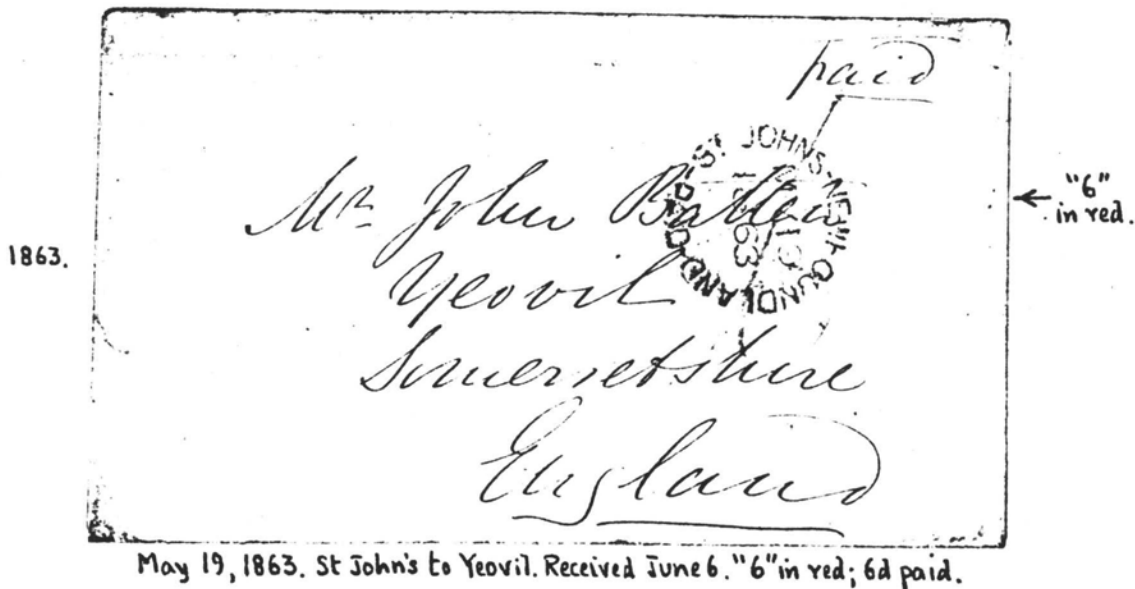 paid
ST. JOHNS. NEWFOUNDLAND
PAID
19
63
Mr. John Batten
Yeovil
Somersetshire
England
1863.
"6"
in red.
May 19, 1863. St John's to Yeovil. Received June 6. "6" in red; 6d paid.